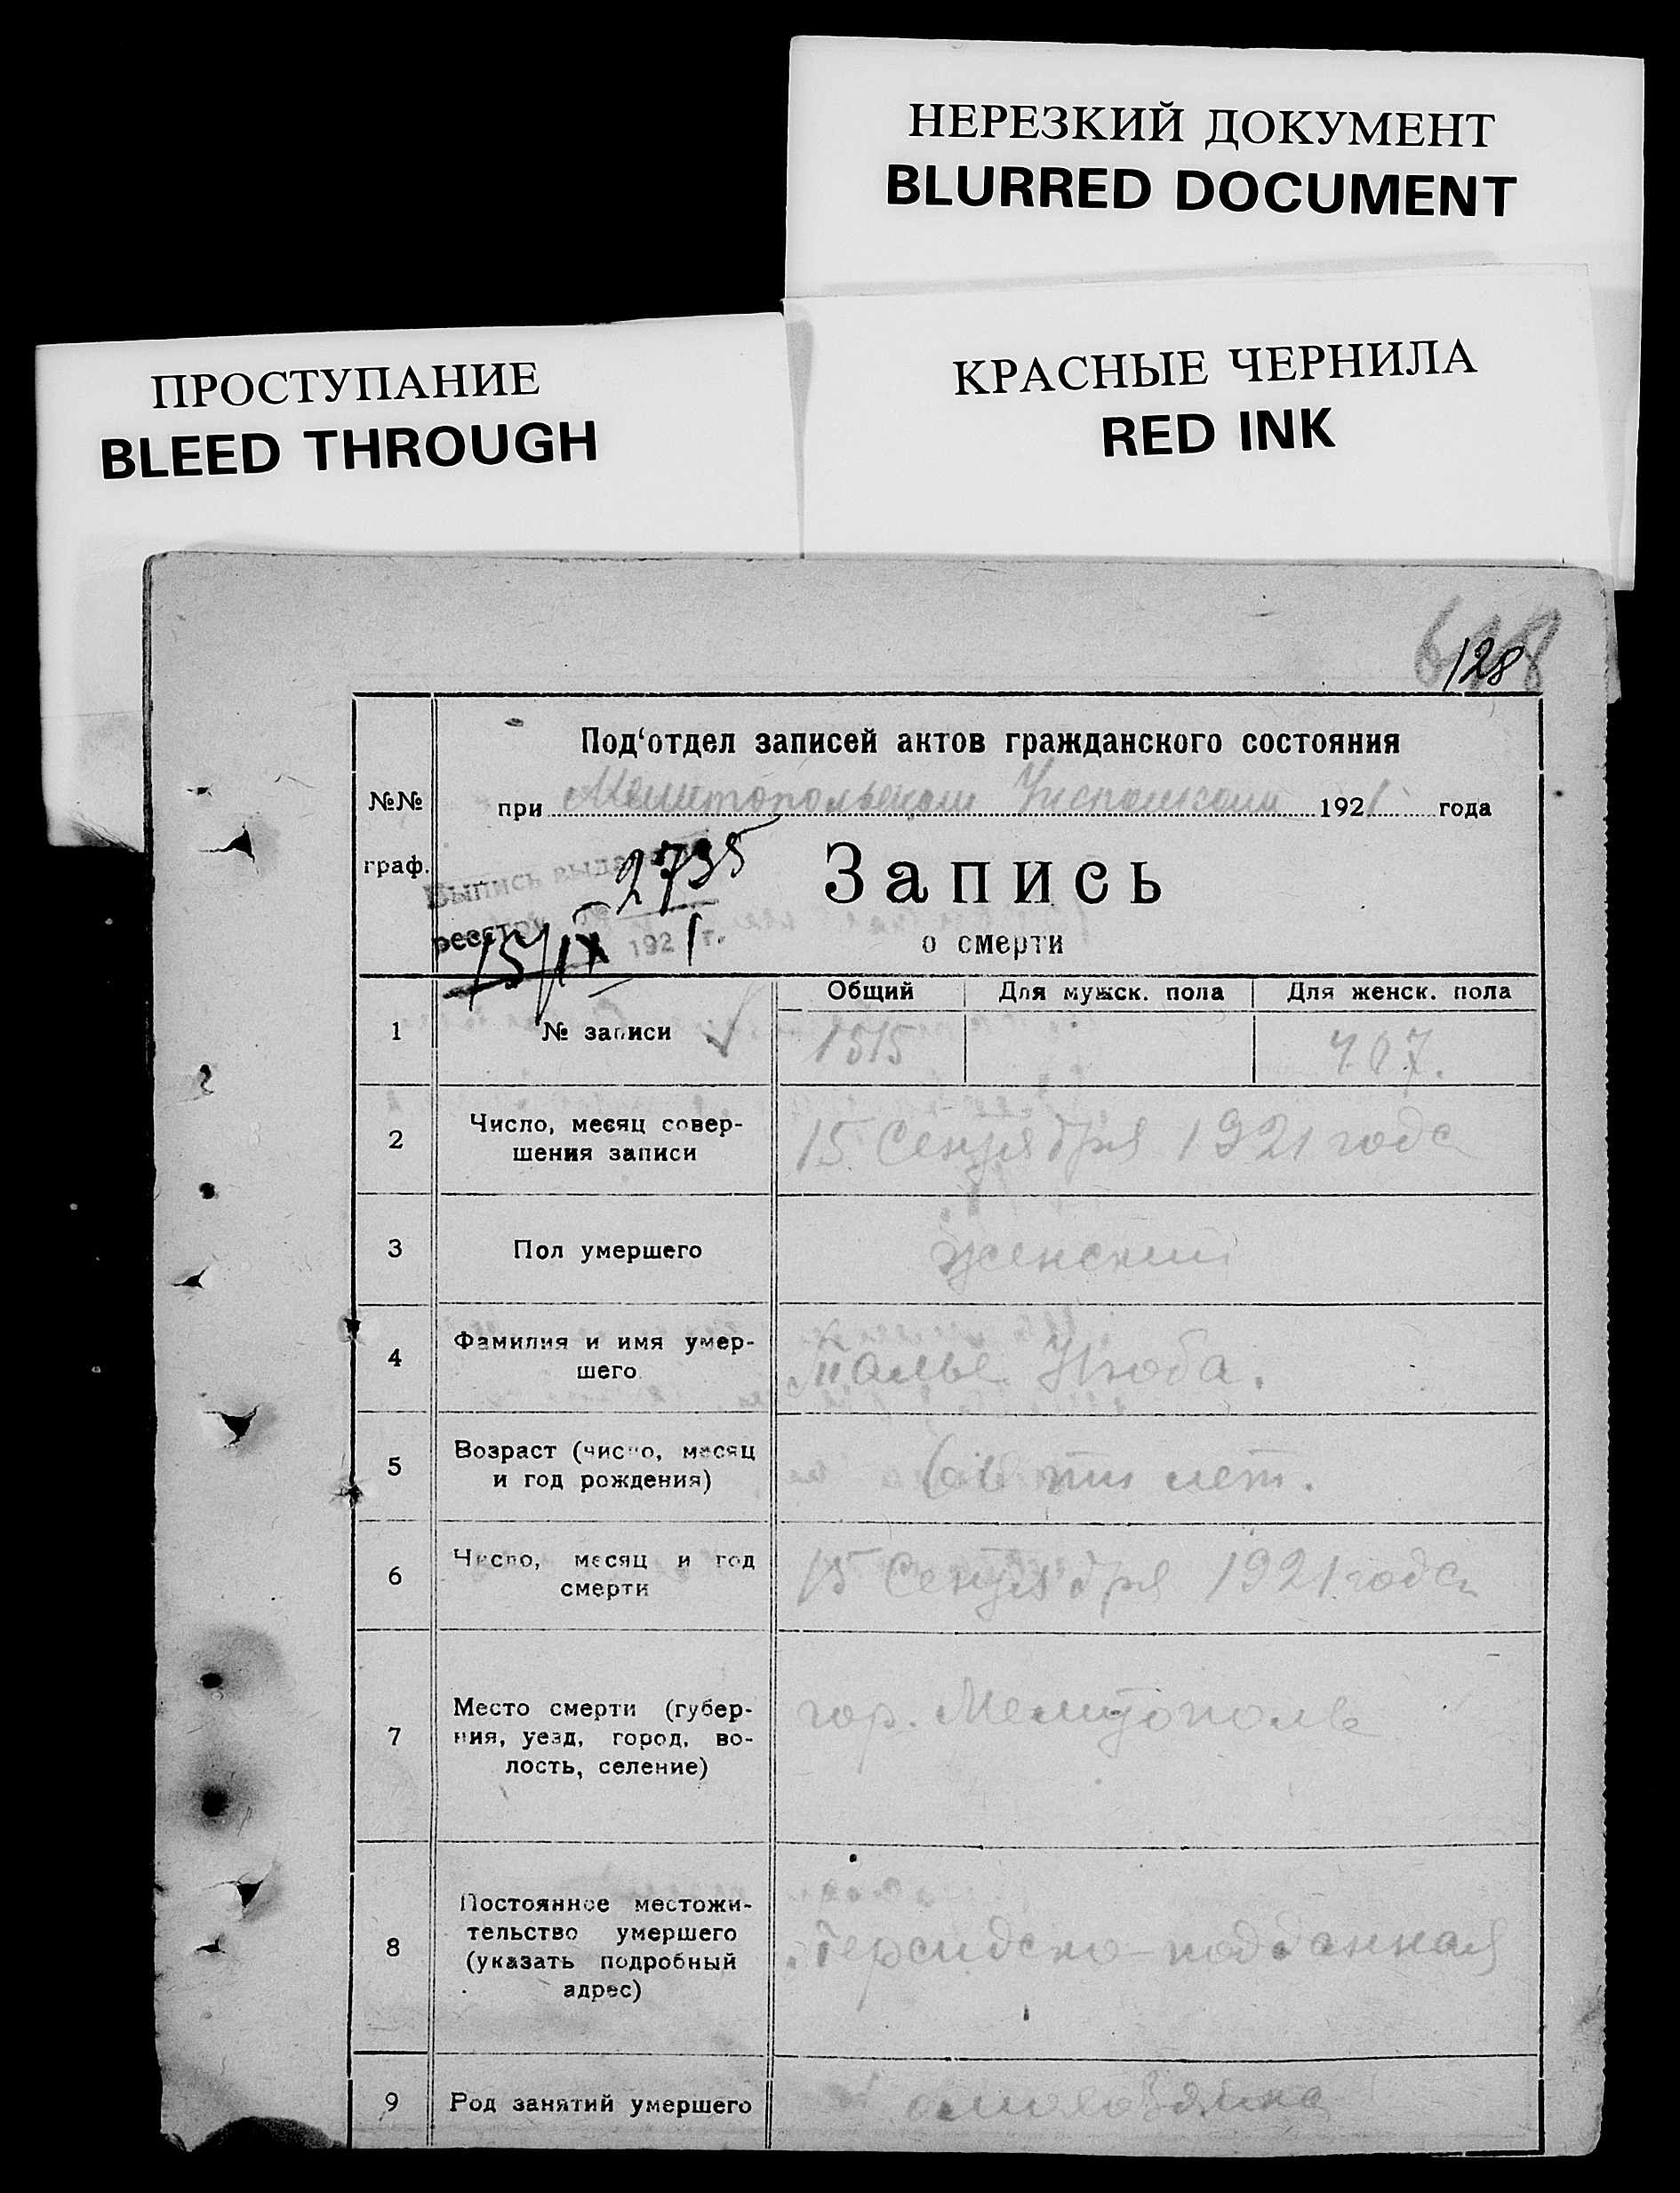 НЕРЕЗКИЙ ДОКУМЕНТ
BLURRED DOCUMENT
ПРОСТУПАНИЕ
BLEED THROUGH
КРАСНЫЕ ЧЕРНИЛА
RED INK
128
Под‘отдел записей актов гражданского состояния
№№
граф.
при Мелитопольском 1921 года
Выпись выда
2735
реестру №
15/IX 1921 г.
Запись
о смерти
Общий Для мужск. пола Для женск. пола
1 № записи 1515 707.
2 Число, месяц совер-
шения записи
15 Сентября 1921 года
3 Пол умершего женский
4 Фамилия и имя умер-
шего
5 Возраст (число, месяц
и год рождения)
ти лет.
6 Число, месяц и год
смерти
15 Сентября 1921 года
7 Место смерти (губер-
ния, уезд, город, во-
лость, селение)
гор. Мелитополь
8 Постоянное местожи-
тельство умершего
(указать подробный
адрес)
Персидско-подданная
9 Род занятий умершего